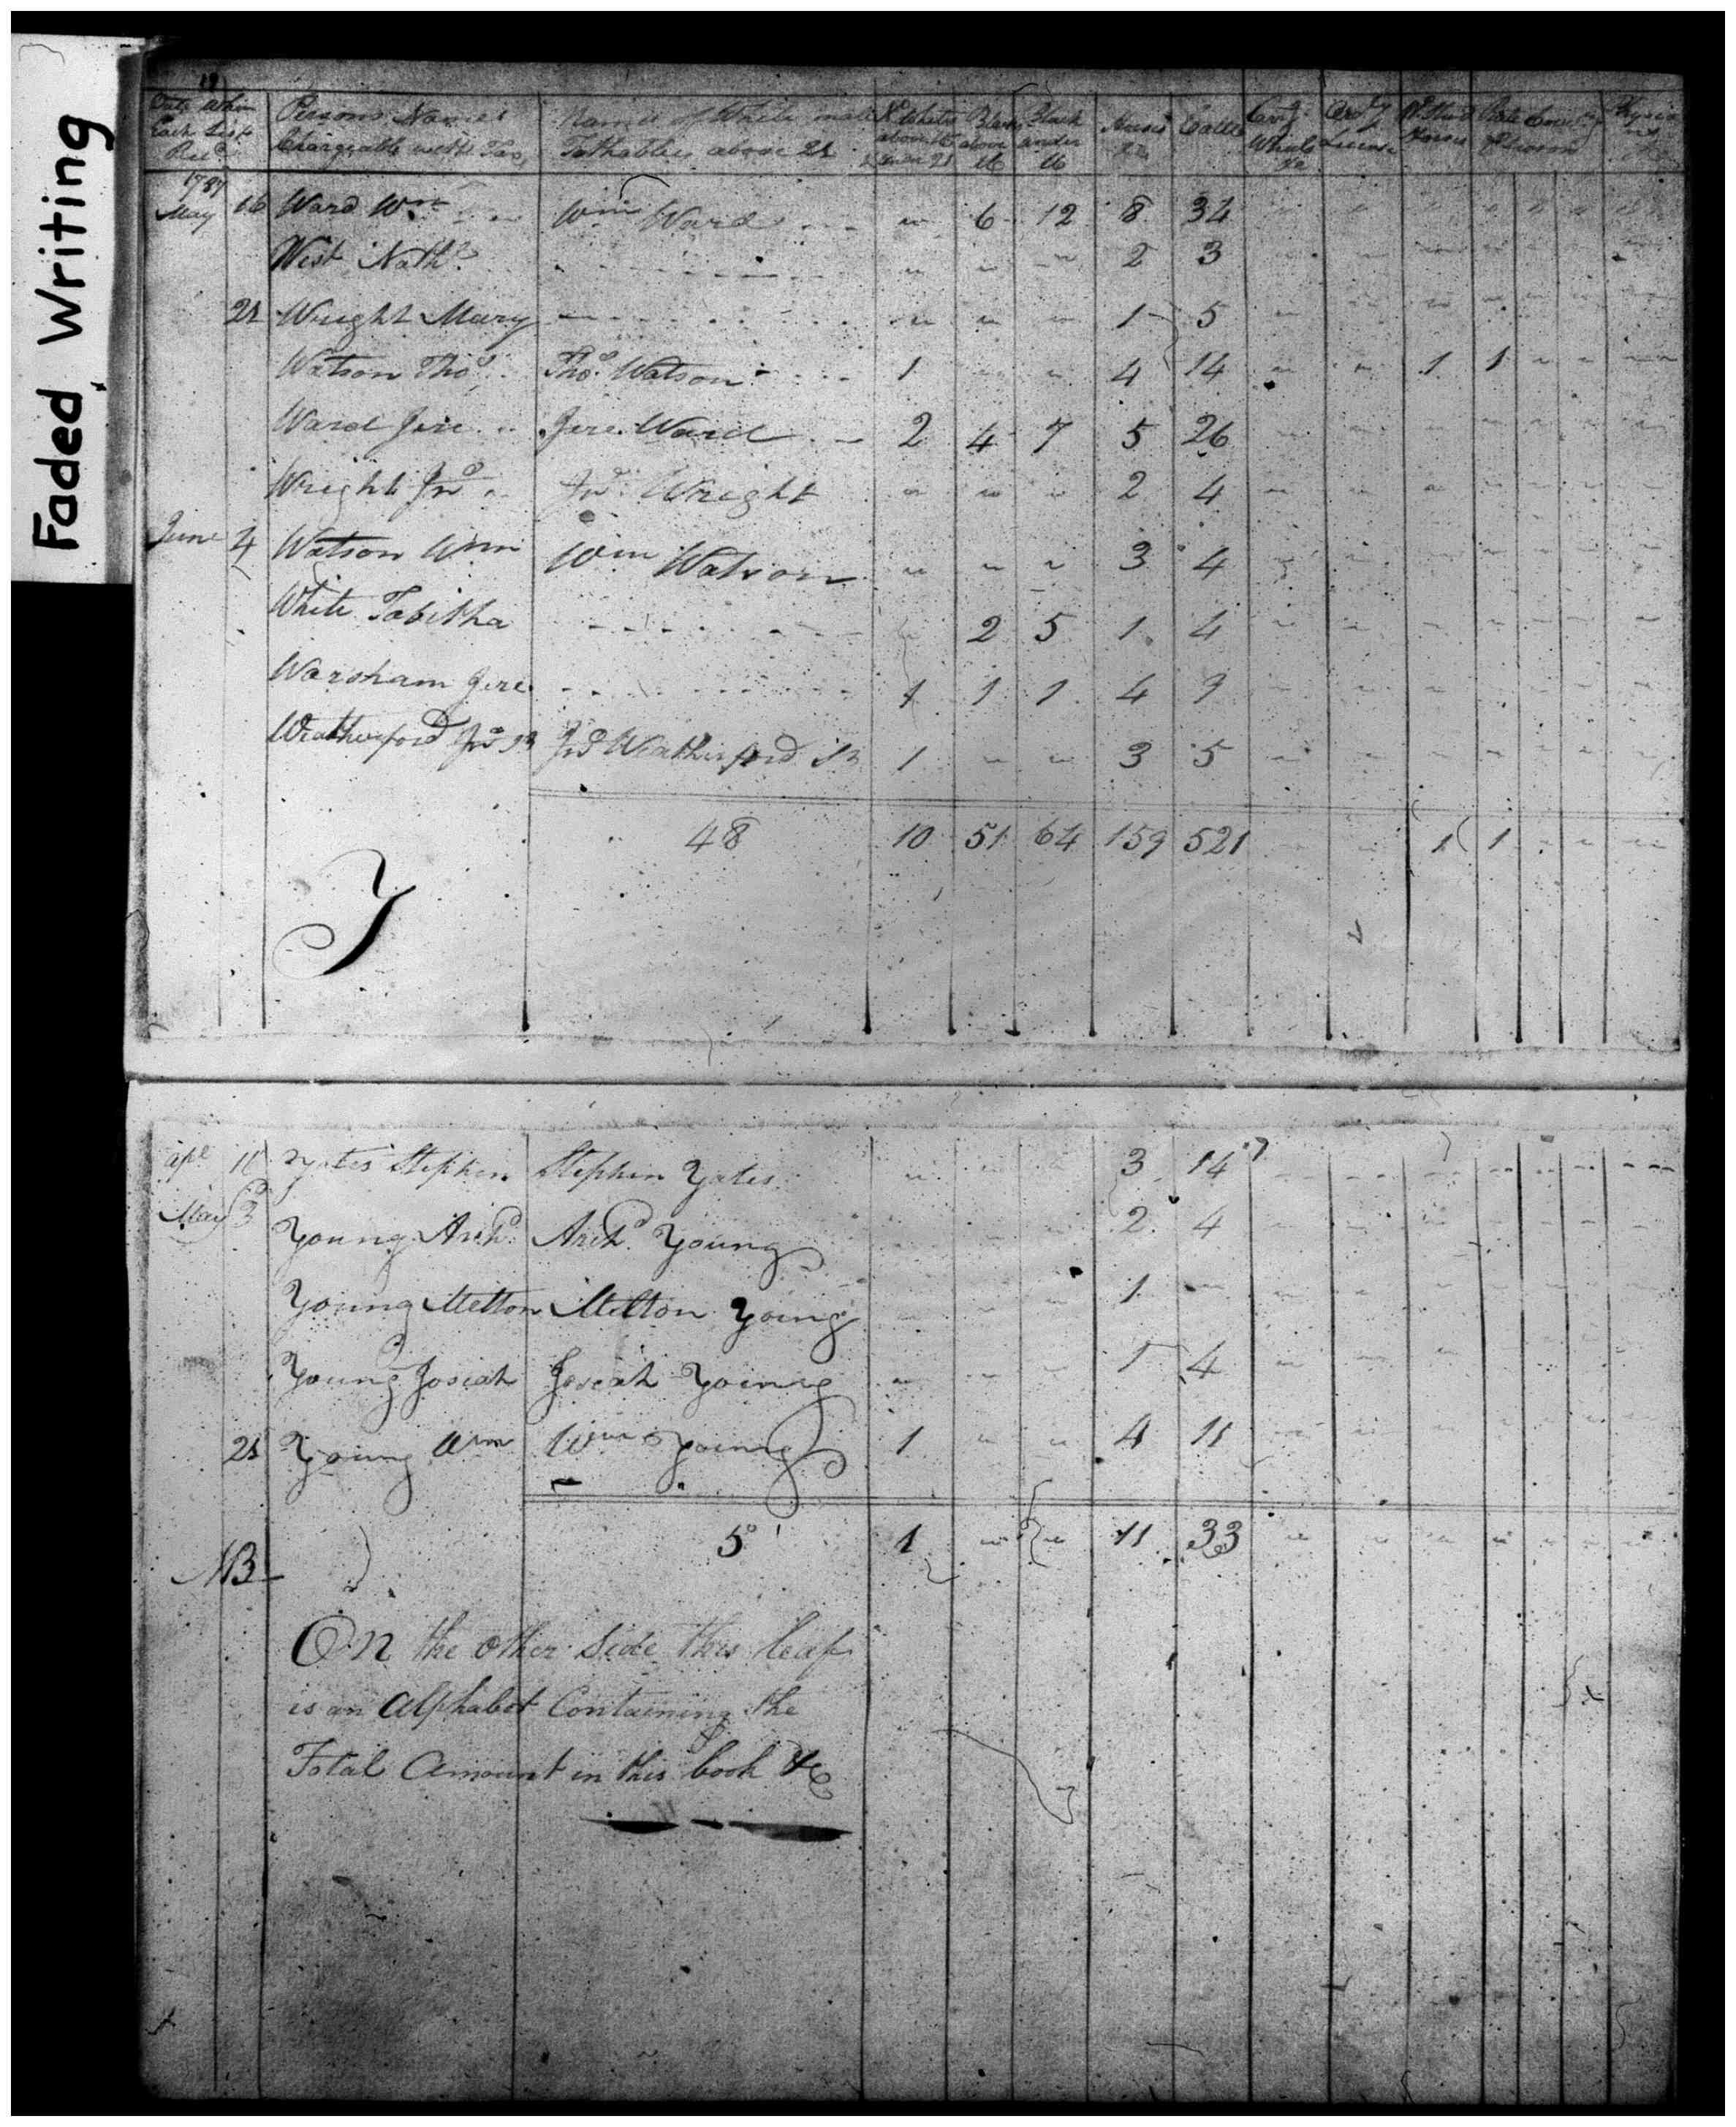 Faded Writing
Date when Each List Recd
Persons Names Chargeable with Tax
Names of White male Tithables above 21
No Whites above 16 & under 21
Blacks above 16
Black under 16
Horses &c
Cattle
Carrg Wheels
Ordy License
Horses
Physicians
1787
May 16 Ward Wm Wm Ward " 6 12 8 34
West Nathl " " " 2 3
21 Wright Mary " " " 1 5
Watson Thos Thos Watson 1 " " 4 14 " " 1 1 " " "
Ward Jere Jere Ward 2 4 7 5 26
Wright Jno Jno Wright " " " 2 4
June 4 Watson Wm Wm Watson " " " 3 4
White Tabitha " 2 5 1 4
Worsham Jere 1 1 1 4 9
Weatherford Jno Sr Jno Weatherford Sr 1 " " 3 5
48 10 51 64 159 521 " " 1 1 " " "
Y
Apl 11 Yates Stephen Stephen Yates " " " 3 14
May 3 Young Archd Archd Young " " 2 4
Young Melton Melton Young " " " 1 "
Young Josiah Josiah Young " " " 1 4
21 Young Wm Wm Young 1 " " 4 11
5 1 " " 11 33 " " " " " "
NB
On the other Side this leaf
is an Alphabet Containing the
Total Amount in this book &c